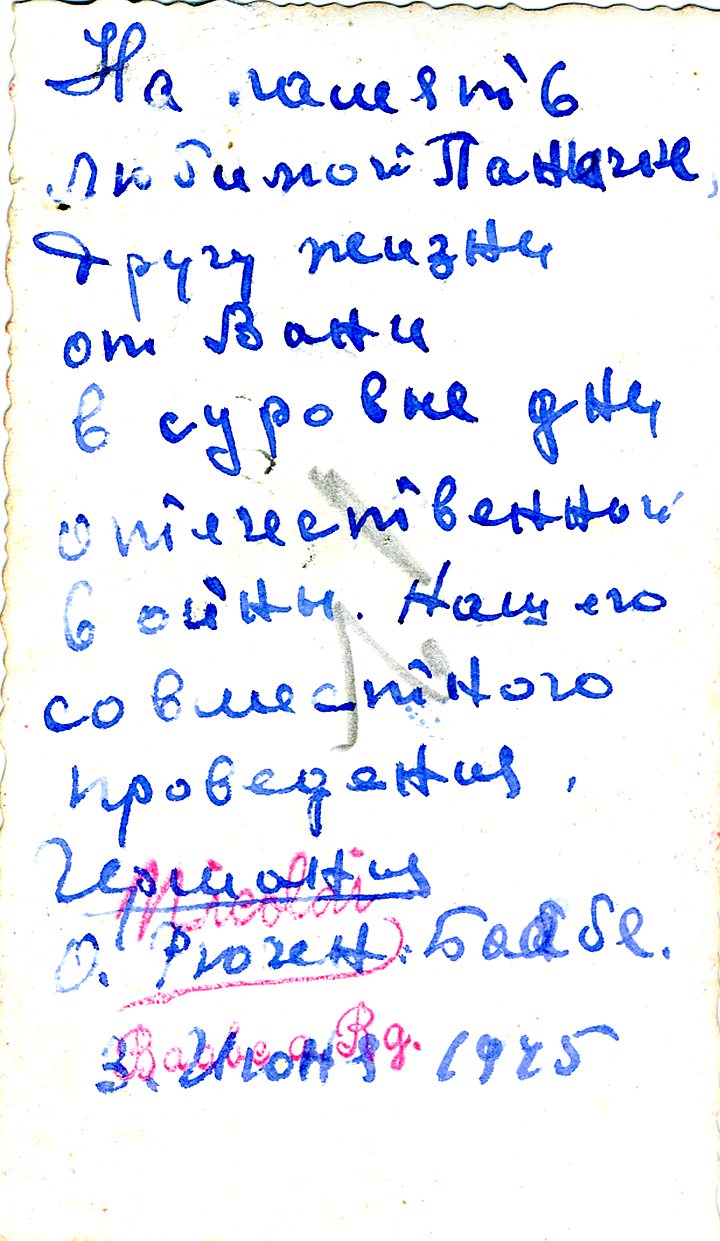 На память
любимой Панычке,
другу жизни
от Вани
в суровые дни
отечественной
войны. Нашего
совместного
проведения.
Германия
Nicolai
О. Рюген. Баабе.
Baabe a Rg.
3. Июня 1945